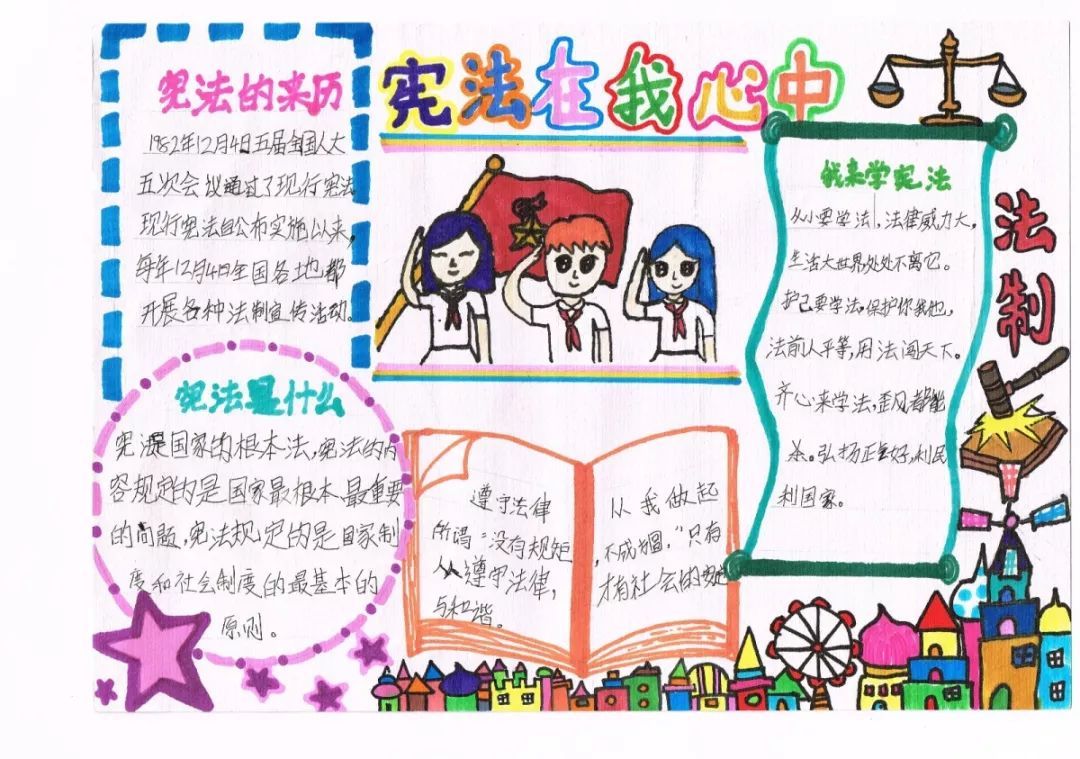 宪法在我心中
宪法的来历
1982年12月4日五届全国人大
五次会议通过了现行宪法
现行宪法自公布实施以来,
每年12月4日全国各地都
开展各种法制宣传活动。
宪法是什么
宪法是国家的根本法,宪法的内
容规定的是国家最根本、最重要
的问题,宪法规定的是国家制
度和社会制度的最基本的
原则。
遵守法律 从我做起
所谓"没有规矩 ,不成 ,"只有
人人遵守法律, 才有社会的安定
与和谐。
我来学宪法
从小要学法,法律威力大,
生活大世界处处不离它。
护己要学法,保护你我他,
法前人平等,用法闯天下。
齐心来学法,歪风都能
杀。弘扬正气好,利民
利国家。
法制